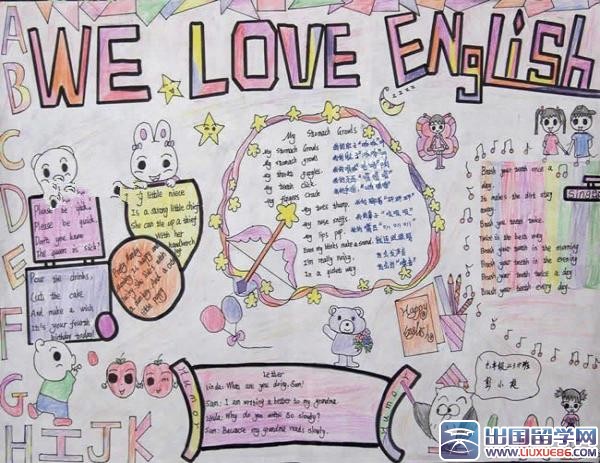 WE LOVE ENgLiSh
A
B
C
D
E
F
G
H I J K
zzzzz
Please be quick,
Don't you know
The queen is sick?
Pour the drinks,
Cut the cake
And make a wish
It's your fourth
birthday today!
y little niece
Is a strong little chic
She can tie up a thing
With her
handkerch
My Stomach Growls
My stomach growls
My stomach growls
My throat gurgles.
My teeth click.
My fingers crack
My toes thump.
My nose sniffs
My lips pop.
Even my blinks make a sound.
I'm really noisy,
In a quiet way
Brush your teeth once a
day.
It makes the dirt stay
away
Brush your teeth twice.
Twice is the best way
Brush your teeth in the morning
Brush your teeth in the evening
Brush your teeth twice a day
Brush your teeth every day.
Happy
English
Humor
Letter
Linda: What are you doing, Sam?
Sam: I am writing a letter to my grandma.
Linda: Why do you write so slowly?
Sam: Because my grandma reads slowly.
Humor
出国留学网
WWW.LIUXUE86.COM